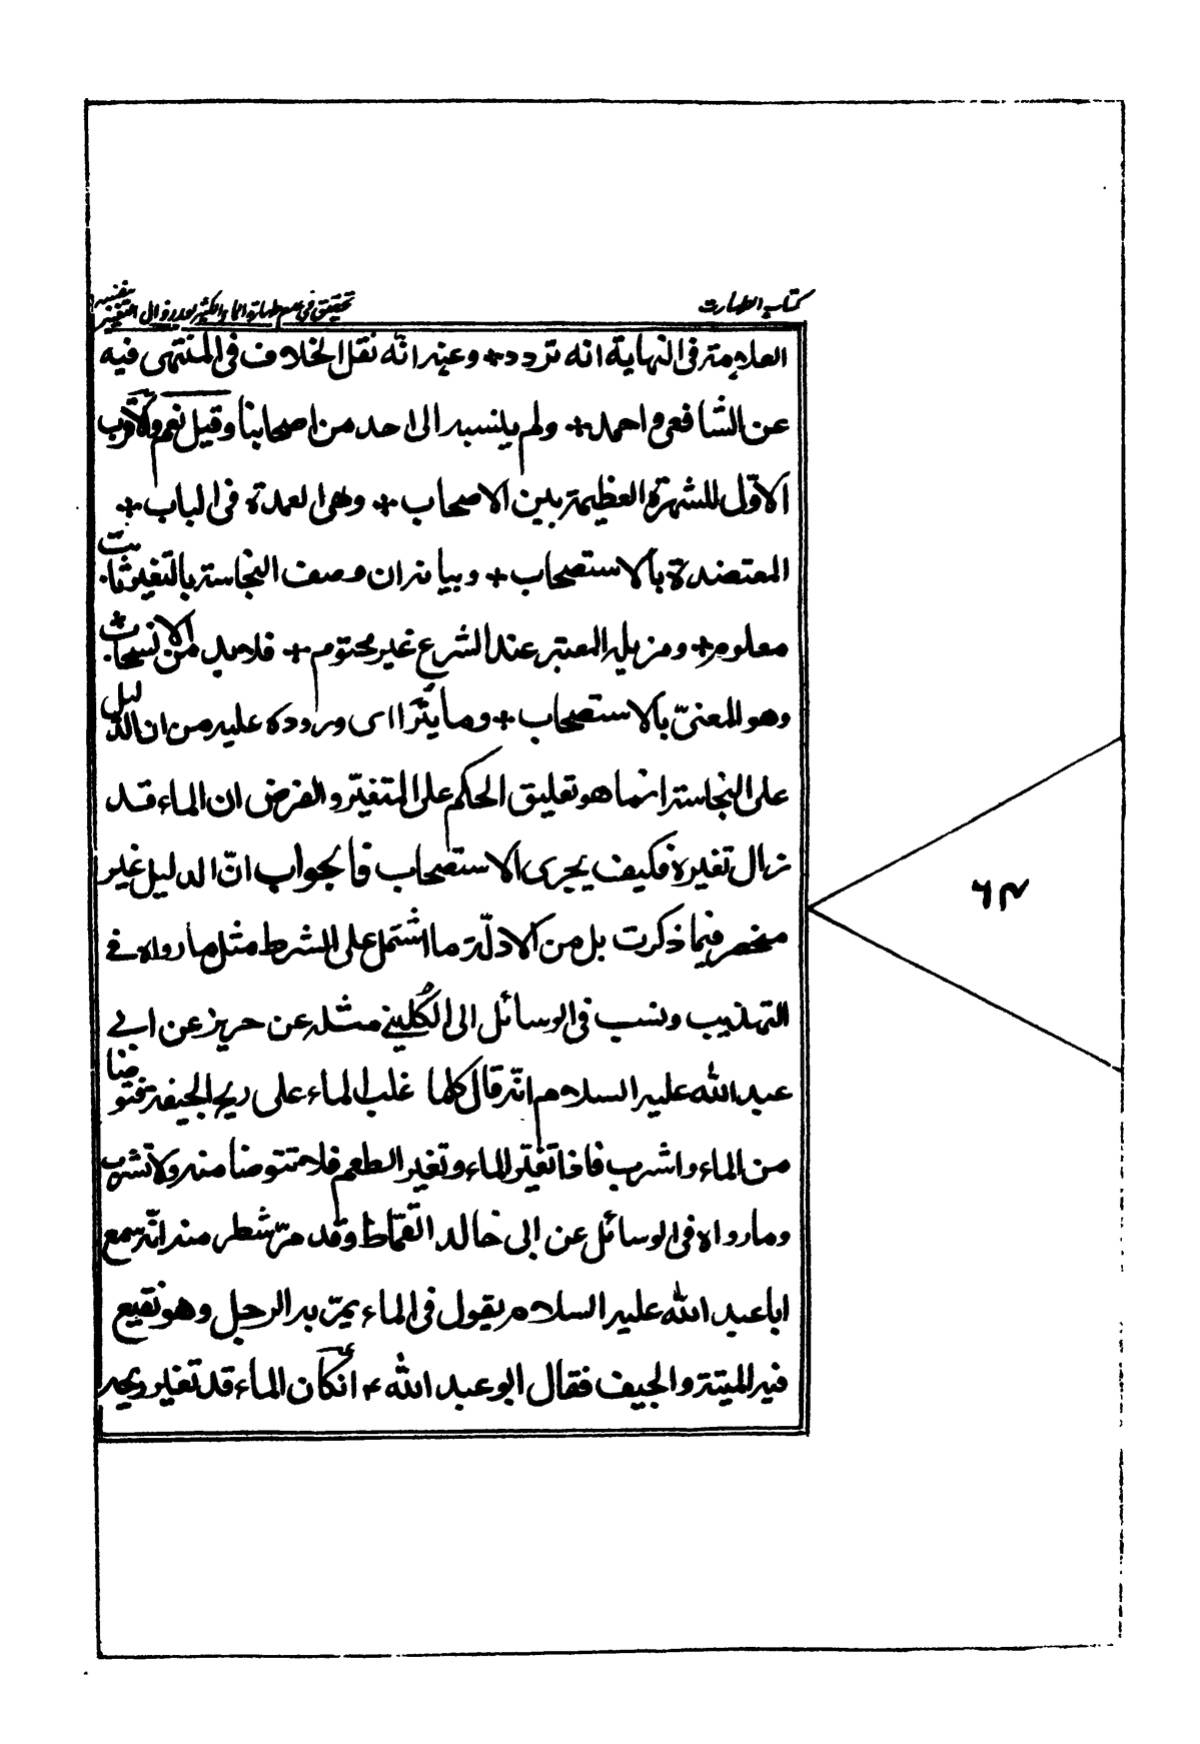 كتاب الطهارت
تحقيق في عدم طهارة الماء الكثير بعد زوال التغير بنفسه
العلامة في النهاية انه تردد + وعنه انّه نقل الخلاف في المنتهى فيه
عن الشافعي واحمد + ولم ينسبه الى احد من اصحابنا وقيل نعم والاقرب
الاوّل للشهرة العظيمة بين الاصحاب + وهي العمدة في الباب +
المعتضدة بالاستصحاب + وبيانه ان وصف النجاسة بالتغير ثابت
معلوم + ومزيله المعتبر عند الشرع غير محتوم + فلابد من الانسحاب +
وهو المعنىّ بالاستصحاب + وما يتراای وروده عليه من ان الدليل
على النجاسة انما هو تعليق الحكم على المتغيّر والفرض ان الماء قد
زال تغيره فكيف يجرى الاستصحاب فالجواب انّ الدليل غير
منحصر فيما ذكرت بل من الادلّة ما اشتمل على الشرط مثل ما رواه في
التهذيب ونسب في الوسائل الى الكُليني مثله عن حريز عن ابي
عبد الله عليه السلام انّه قال كلما غلب الماء على ريح الجيفة فتوضا
من الماء واشرب فاذا تغيّر الماء وتغير الطعم فلا تتوضا منه ولا تشرب
وما رواه في الوسائل عن ابى خالد القمّاط وقد مرّ شطر منه انّه سمع
ابا عبد الله عليه السلام يقول في الماء يمرّ به الرجل وهو نقيع
فيه الميتة والجيف فقال ابو عبد الله ؏ ان كان الماء قد تغير ريحه
۶۳